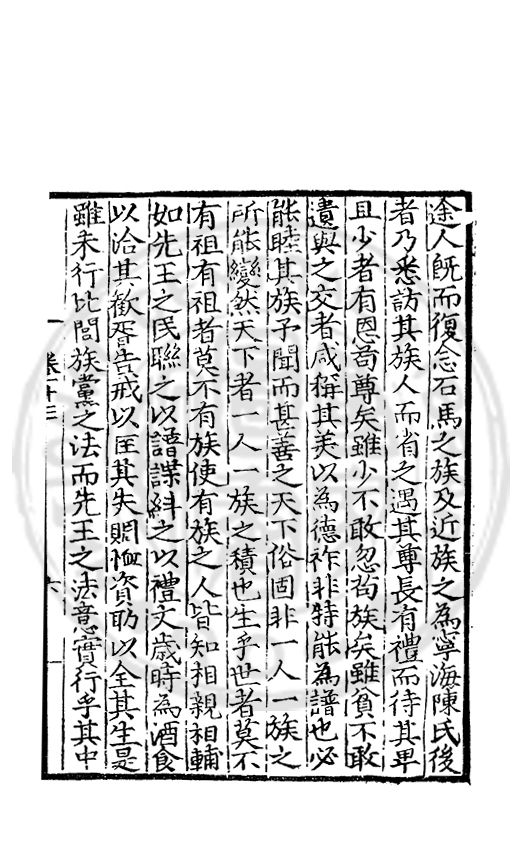 途人旣而復念石馬之族及近族之為寧海陳氏後
者乃悉訪其族人而省之遇其尊長有禮而待其卑
且少者有恩苟尊矣雖少不敢忽茍族矣雖貧不敢
遺與之交者咸稱其美以為德祚非特能為譜也必
能睦其族予聞而甚善之天下俗固非一人一族之
所能變然天下者一人一族之積也生乎世者莫不
有祖有祖者莫不有族使有族之人皆知相親相輔
如先王之民聯之以譜諜糾之以禮文歲時為酒食
以洽其歡胥告戒以匡其失賙恤資助以全其生是
雖未行比閭族黨之法而先王之法意實行乎其中
卷十三
六